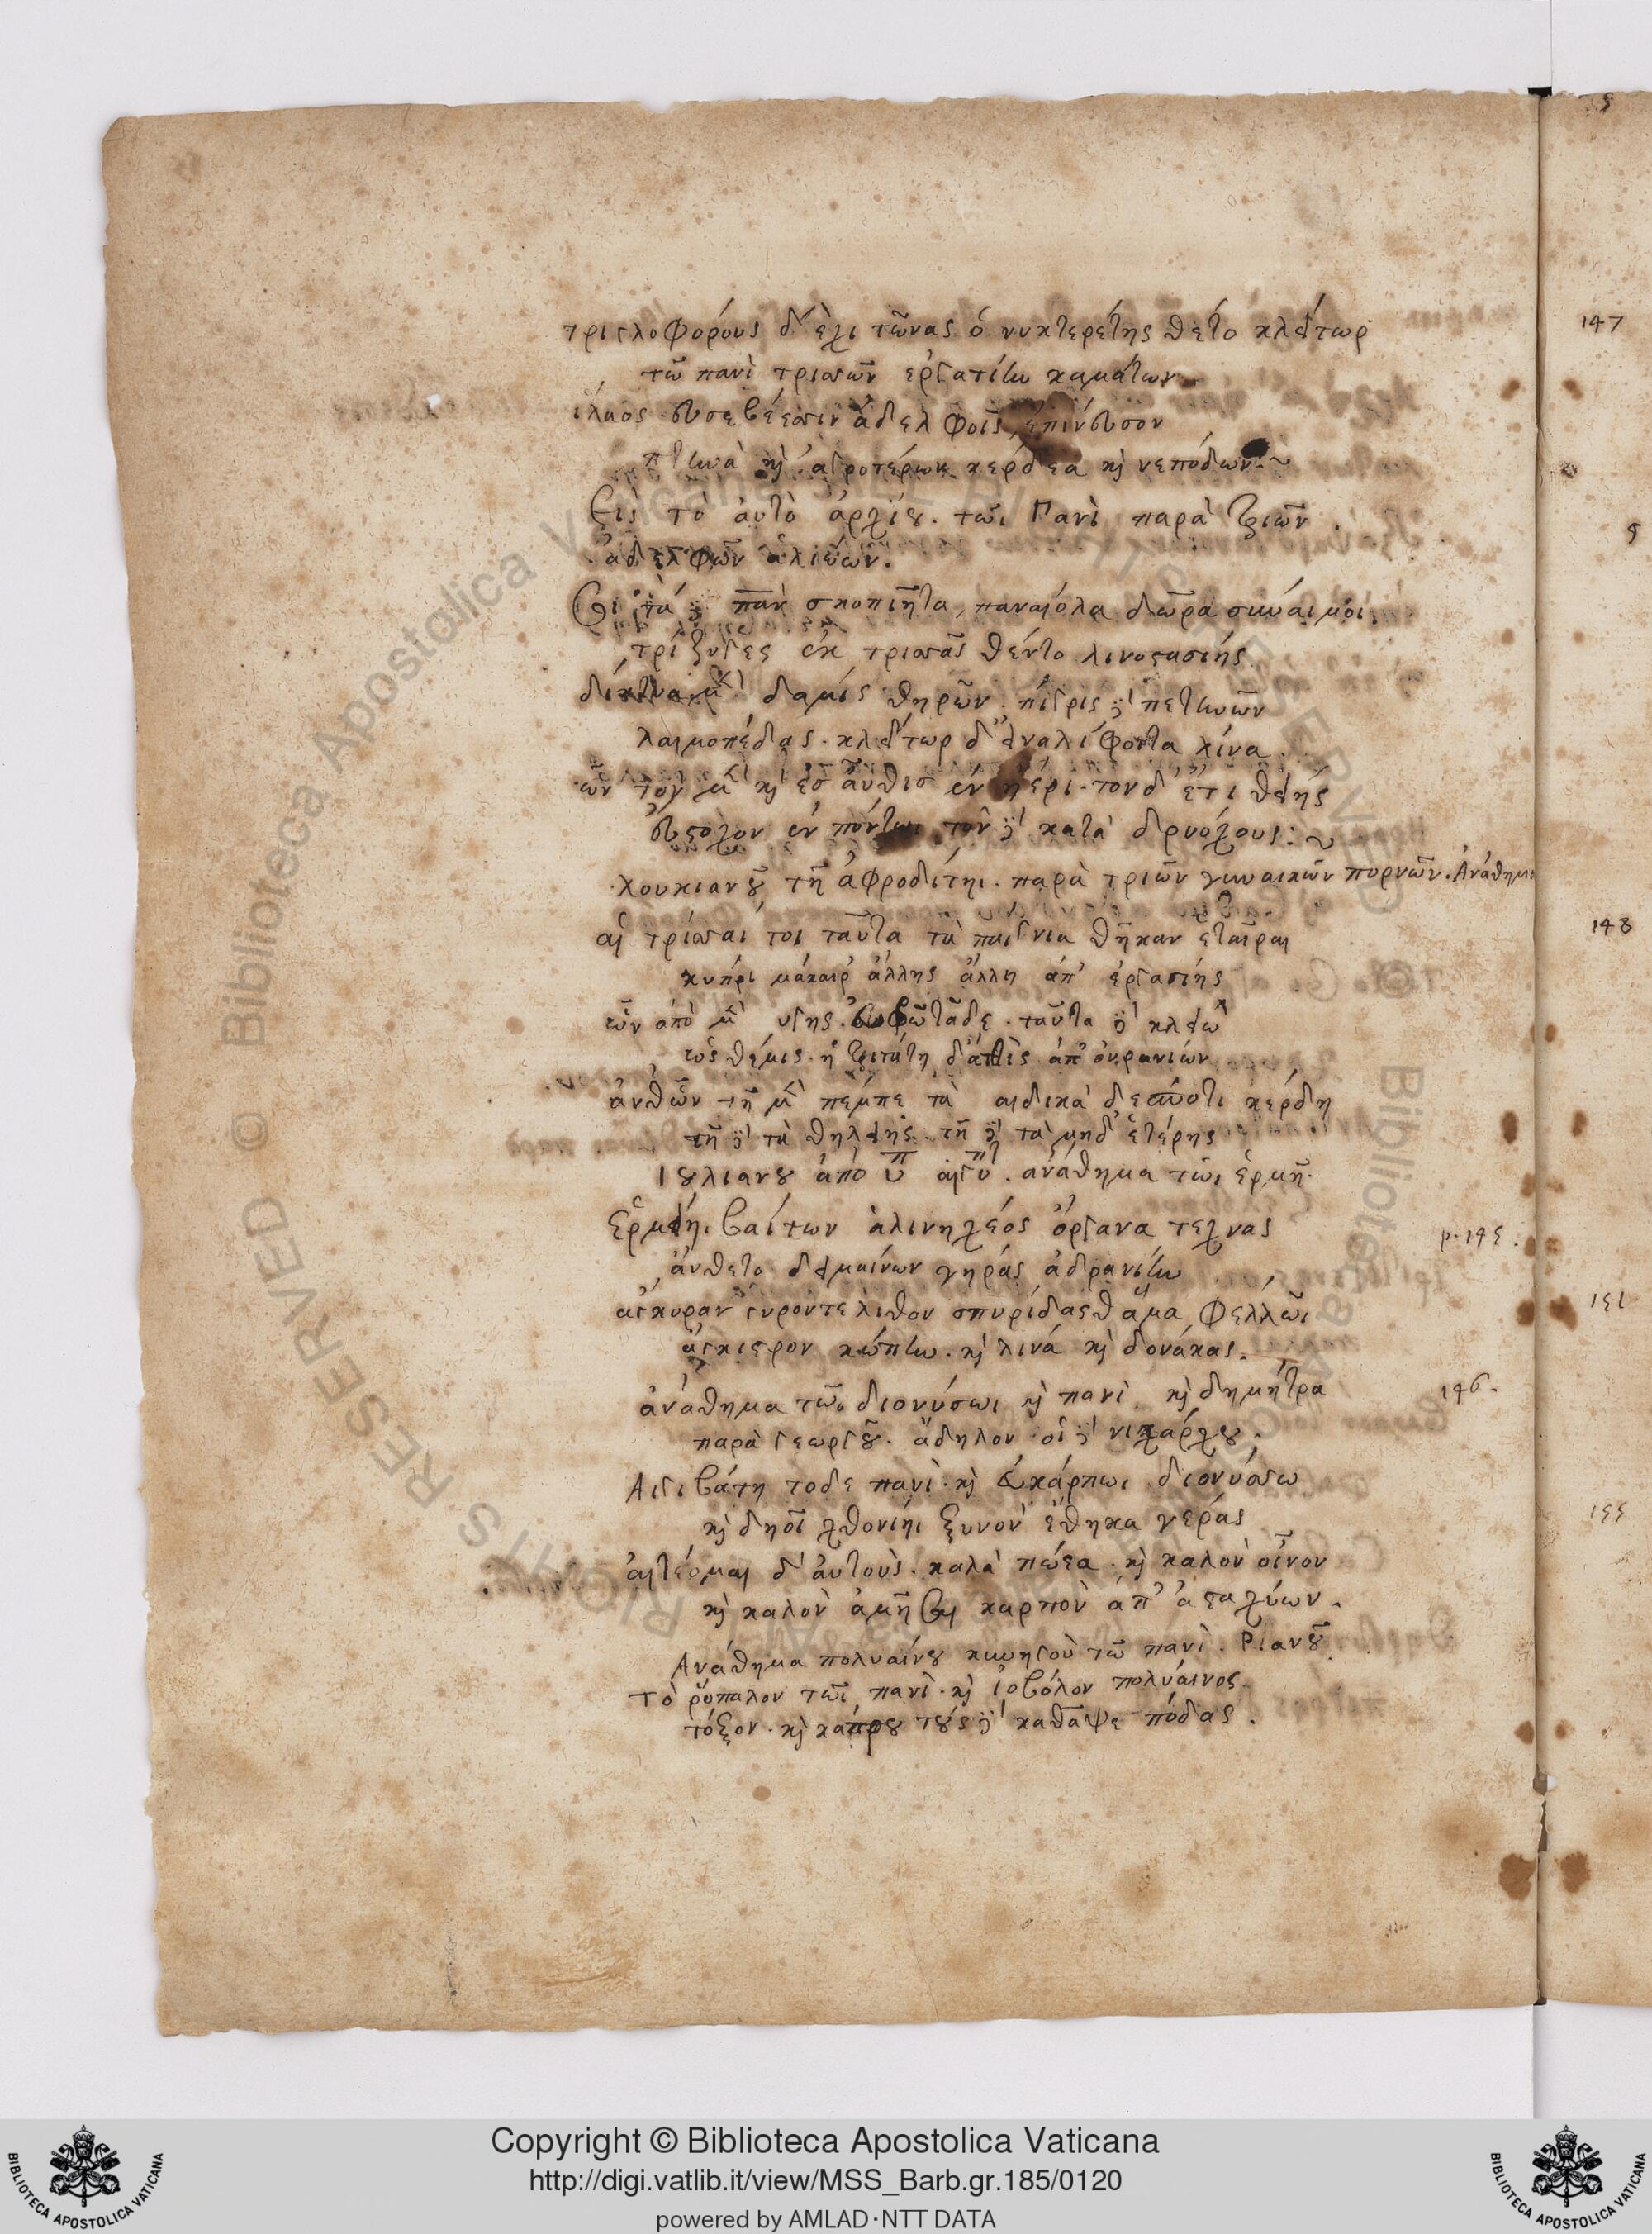 τριγλοφόρους δὲ χιτῶνας ὁ νυκτερέτης θέτο κλείτωρ
τῶ πανὶ τρισσῶν ἐργατίην καμάτων
ἵλαος εὐσεβέεσσιν ἀδελφοῖς ἐπίνευσον
πτηνὰ καὶ ἀγροτέρων κέρδεα καὶ νεπόδων ~
Εἰς τὸ ἀυτὸ ἀρχίου. τῶι Πανὶ παρὰ τριῶν
ἀδελφῶν ἁλιέων.
σοὶ τάδε πὰν σκοπιῆτα, παναίολα δῶρα σύναιμοι
τρίζυγες ἐκ τρισσᾶς θέντο λινοστασίης
δίκτυα μὲν δαμις θηρῶν. πίγρις δὲ πετηνῶν
λαιμοπέδας. κλείτωρ δ' ἐναλίφοιτα λίνα.
ὧν τὸν μὲν καὶ ἐσαῦθις ἐν ἠέρι. τὸν δ' ἔτι θείης
ἔυστοχον ἐν πόντωι τὸν δὲ κατὰ δρυόχους: ~
λουκιανοῦ τῆ ἀφροδίτηι. παρὰ τριῶν γυναικῶν πορνῶν. Ἀνάθημα
αἱ τρίσσαί τοι ταῦτα τὰ παίγνια θῆκαν ἑταῖραι
κύπρι μάκαιρ' ἄλλης ἄλλη ἀπ' ἐργασίης
ὧν ἀπὸ μὲν υγης ἐυφρῶ τάδε. ταῦτα δὲ κλειὼ
ὡς θέμις. ἡ τριτάτη δ' ἀτθὶς ἀπ' ὀυρανιών
ἀνθῶν τῆ μὲν πέμπε τὰ αιδικὰ δεσπότι κέρδη
τῆ δὲ τὰ θηλείης. τῆ δὲ τὰ μηδ' ἑτέρης
Ἰουλιανοῦ ἀπὸ ὑπ αιγυπ. ἀνάθημα τῶι ἑρμῆ.
Ἑρμείηι βαίτων ἁλινηχέος ὄργανα τέχνας
ἄνθετο δειμαίνων γηρᾶς ἀδρανίην
ἄγκυραν γυρόν τε λίθον σπυρίδας θ' ἅμα φελλῶι
ἄγκιστρον κώπην. καὶ λινά καὶ δονάκας.
ἀνάθημα τῶι διονύσωι καὶ πανὶ. καὶ δημήτρα
παρὰ γεωργοῦ. ἄδηλον οἱ δὲ νικάρχου.
Αιγιβάτη τόδε πανὶ. καὶ ἐυκάρπωι διονύσσω
καὶ δηοῖ χθονίηι ξυνὸν ἔθηκα γέρας
αἰτέομαι δ' ἀυτοὺς. καλὰ πώεα. καὶ καλὸν οἶνον
καὶ καλὸν ἀμῆσαι καρπὸν ἀπ' ἀσταχύων.
Ἀνάθημα πολυαίνου κυνηγοῦ τῶ πανὶ. Ριανοῦ
Τὸ ῥόπαλον τῶι πανὶ. καὶ ἰοβόλον πολύαινος
τόξον. καὶ κάπρου τοὺς δὲ καθᾶψε πόδας.
p. 145.
146.
147
5
148
151
155
Copyright © Biblioteca Apostolica Vaticana
http://digi.vatlib.it/view/MSS_Barb.gr.185/0120
powered by AMLAD·NTT DATA
BIBLIOTECA APOSTOLICA VATICANA
BIBLIOTECA APOSTOLICA VATICANA